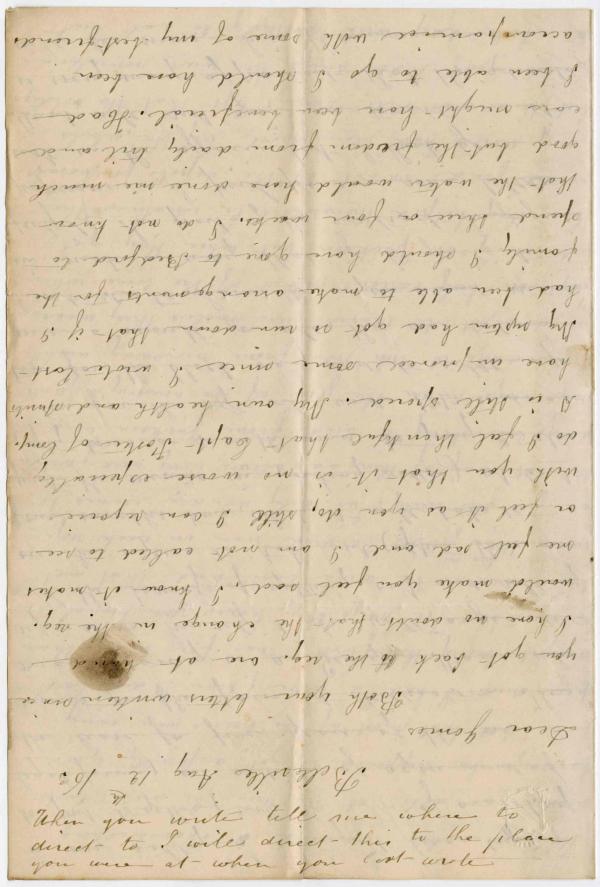 When you write tell me where to
direct to I will direct this to the place
you were at when you last wrote
Belleville Aug 12th '63
Dear James
Both your letters written since
you got back to the reg. are at hand
I have no doubt that the change in the reg.
would make you feel sad, I know it makes
me feel sad and I am not called to see
or feel it as you do, still I can rejoice
with you that it is no worse especially
do I feel thankful that Capt Foster of Comp.
is still spared. My own health and spirits
have improved some since I wrote last
My system had got so run down that if I
had been able to make arrangements for the
family I should have gone to Bedford to
spend three or four weeks. I do not know
that the water would have done me much
good but the freedom from daily toil and
care might have been beneficial. Had
I been able to go I should have been
accompanied with some of my best friends